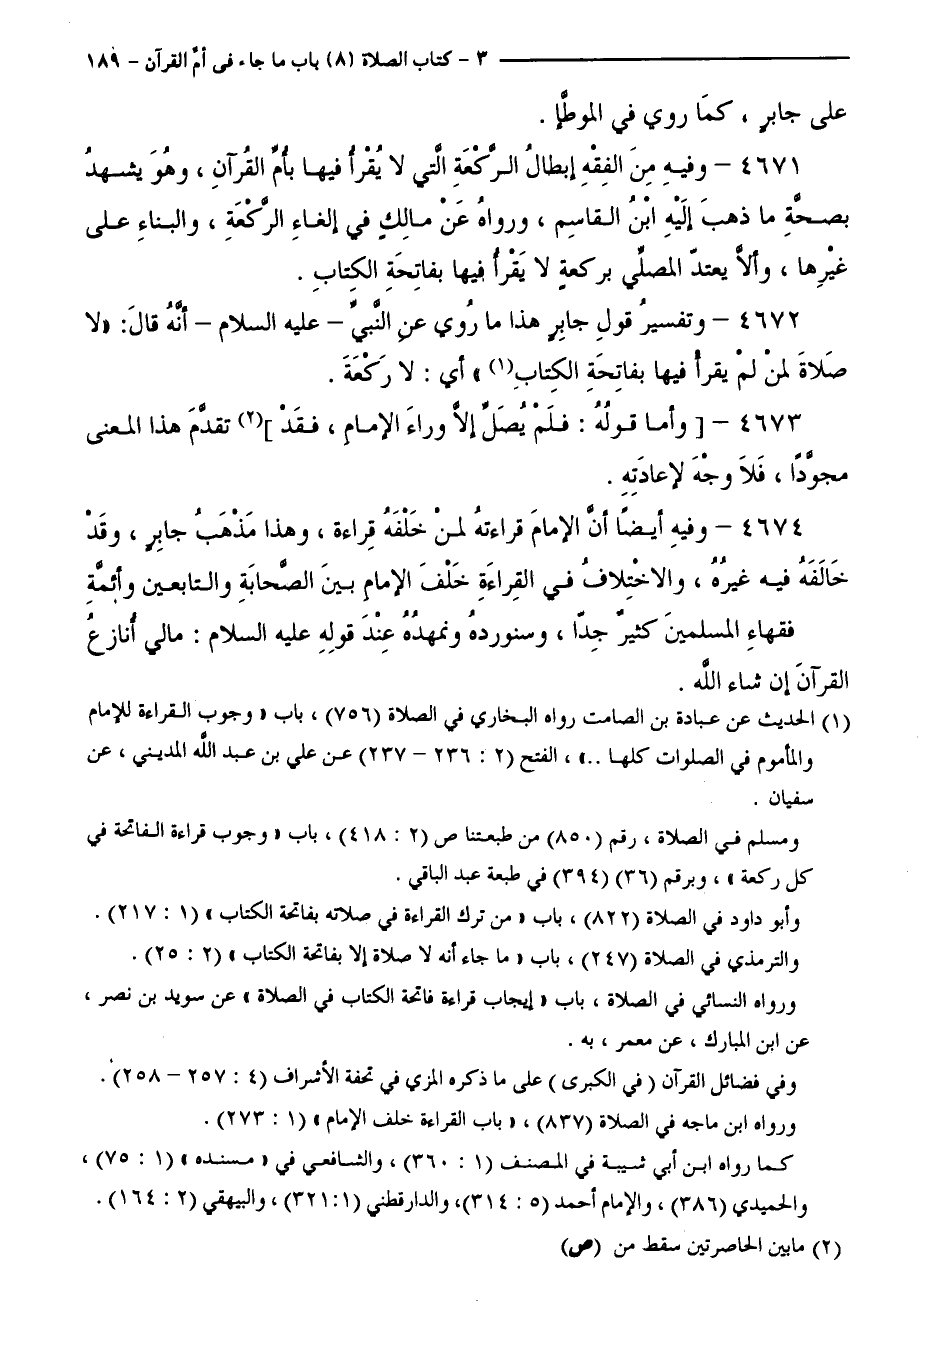 ٣ - كتاب الصلاة (٨) باب ما جاء فى أمّ القرآن - ١٨٩
على جابرٍ ، كمَا روي في الموطَّإ .
٤٦٧١ - وفيهِ مِنَ الفِقْهِ إبطالُ الرَّكْعَةِ الَّتي لا يُقْرأُ فيها بأُمِّ القُرآنِ ، وهُوَ يشهدُ
بصحَّةِ ما ذهبَ إلَيْهِ ابْنُ القاسِم ، ورواهُ عَنْ مالِكٍ في إلغاءِ الرَّكْعَةِ ، والبناءِ على
غيْرِها ، وألاَّ يعتدّ المصلِّي بركعةٍ لا يَقْرأُ فيها بفاتحَةِ الكتابِ .
٤٦٧٢ - وتفسيرُ قولِ جابِرٍ هذا ما رُوي عنِ النَّبيِّ - عليه السلام - أنَّهُ قالَ: «لا
صَلاةَ لمنْ لمْ يقرأْ فيها بفاتِحَةِ الكتابِ(١) » أي : لا رَكْعَةَ .
٤٦٧٣ - [ وأما قولُهُ : فلَمْ يُصَلِّ إلاَّ وراءَ الإمامِ ، فقَدْ ](٢) تقدَّمَ هذا المعنى
مجوَّدًا ، فَلاَ وجْهَ لإعادَتِهِ .
٤٦٧٤ - وفيهِ أيضًا أنَّ الإمامَ قراءتهُ لمنْ خَلْفَهُ قِراءة ، وهذا مَذْهَبُ جابِرٍ ، وقَدْ
خَالَفَهُ فيه غيرُهُ ، والاخْتِلافُ في القِراءَةِ خَلْفَ الإمامِ بينَ الصَّحابَةِ والتابعين وأئِمَّةِ
فقهاءِ المسلمينَ كثيرٌ جدًا ، وسنوردهُ ونمهدُهُ عِنْدَ قولِهِ عليه السلام : مالي أُنازعُ
القرآنَ إن شاء اللَّه .
(١) الحديث عن عبادة بن الصامت رواه البخاري في الصلاة (٧٥٦) ، باب « وجوب القراءة للإمام
والمأموم في الصلوات كلها ..» ، الفتح (٢ : ٢٣٦ - ٢٣٧) عن علي بن عبد اللَّه المديني ، عن
سفيان .
ومسلم في الصلاة ، رقم (٨٥٠) من طبعتنا ص (٢ : ٤١٨) ، باب « وجوب قراءة الفاتحة في
كل ركعة » ، وبرقم (٣٦) (٣٩٤) في طبعة عبد الباقي .
وأبو داود في الصلاة (٨٢٢) ، باب « من ترك القراءة في صلاته بفاتحة الكتاب » (١ : ٢١٧) .
والترمذي في الصلاة (٢٤٧) ، باب « ما جاء أنه لا صلاة إلا بفاتحة الكتاب » (٢ : ٢٥) .
ورواه النسائي في الصلاة ، باب « إيجاب قراءة فاتحة الكتاب في الصلاة » عن سويد بن نصر ،
عن ابن المبارك ، عن معمر ، به .
وفي فضائل القرآن ( في الكبرى ) على ما ذكره المزي في تحفة الأشراف (٤ : ٢٥٧ - ٢٥٨) .
ورواه ابن ماجه في الصلاة (٨٣٧) ، « باب القراءة خلف الإمام » (١ : ٢٧٣) .
كما رواه ابن أبي شيبة في المصنف (١ : ٣٦٠) ، والشافعي في « مسنده » (١ : ٧٥) ،
والحميدي (٣٨٦) ، والإمام أحمد (٥ : ٣١٤)، والدارقطني (١ : ٣٢١) ، والبيهقي (٢ : ١٦٤) .
(٢) مابين الحاصرتين سقط من (ص)